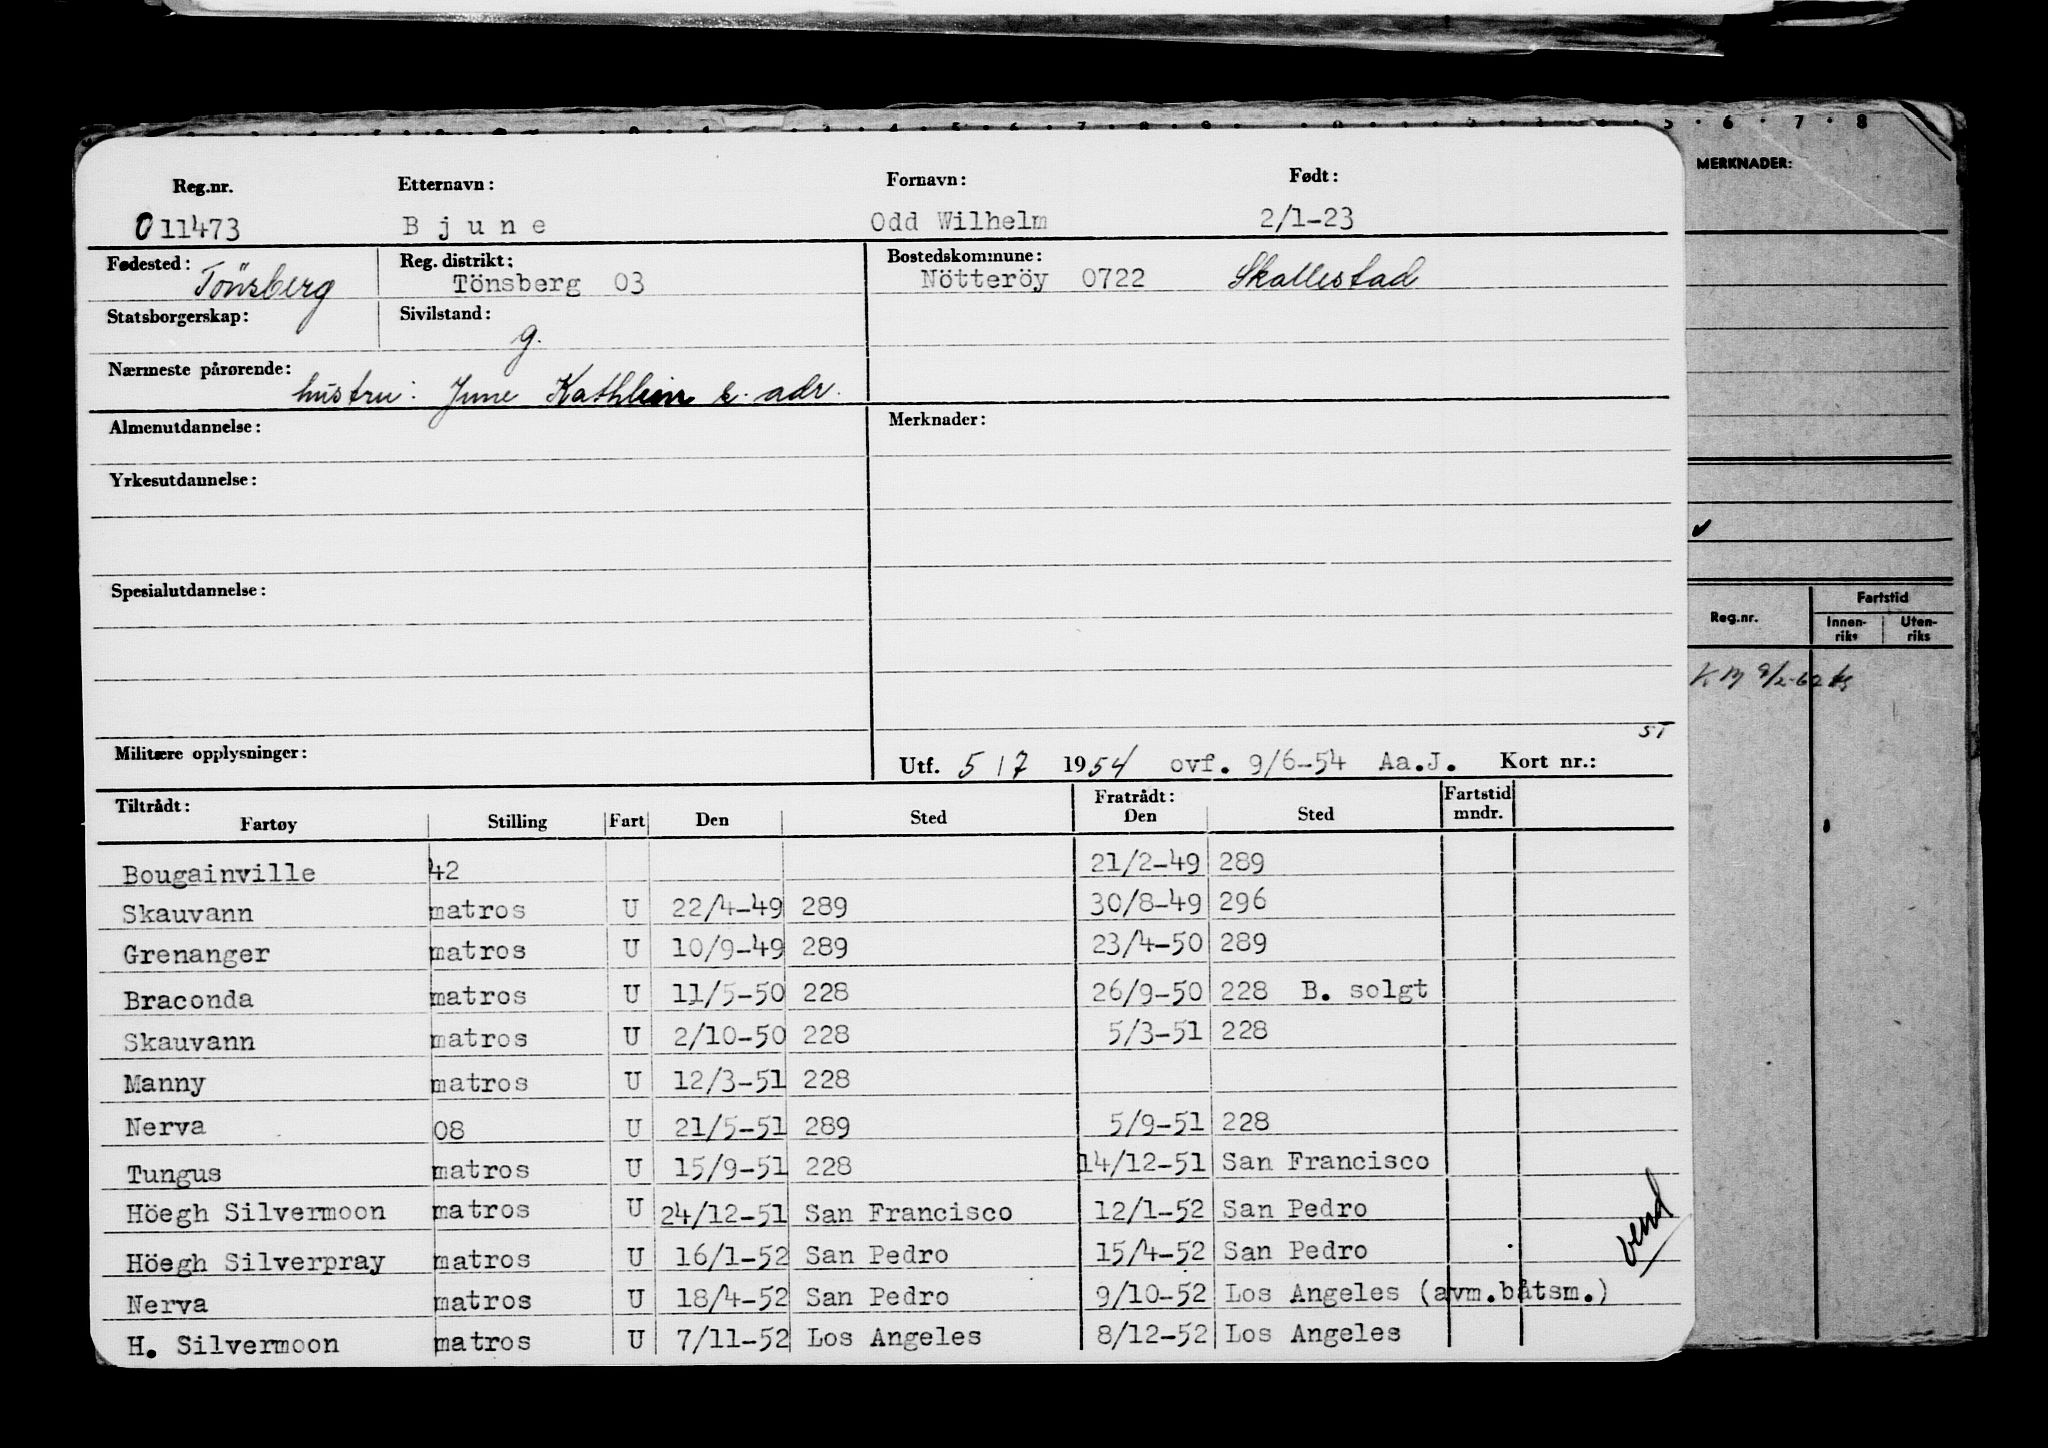 MERKNADER:
Reg.nr. Etternavn: Fornavn: Født:
011473 Bjune Odd Wilhelm 2/1-23
Fødested: Tönsberg Reg. distrikt: Tönsberg 03 Bostedskommune: Nötteröy 0722 Skallestad
Statsborgerskap: Sivilstand: g.
Nærmeste pårørende: hustru: June Kathleen s. adr.
Almenutdannelse: Merknader:
Yrkesutdannelse:
Spesialutdannelse:
Militære opplysninger: Utf. 5/7 1954 ovf. 9/6-54 Aa.J. Kort nr.: ST
Tiltrådt: Fratrådt: Fartstid
Fartøy Stilling Fart Den Sted Den Sted mndr.
Bougainville 42 21/2-49 289
Skauvann matros U 22/4-49 289 30/8-49 296
Grenanger matros U 10/9-49 289 23/4-50 289
Braconda matros U 11/5-50 228 26/9-50 228 B. solgt
Skauvann matros U 2/10-50 228 5/3-51 228
Manny matros U 12/3-51 228
Nerva 08 U 21/5-51 289 5/9-51 228
Tungus matros U 15/9-51 228 14/12-51 San Francisco
Höegh Silvermoon matros U 24/12-51 San Francisco 12/1-52 San Pedro
Höegh Silverpray matros U 16/1-52 San Pedro 15/4-52 San Pedro
Nerva matros U 18/4-52 San Pedro 9/10-52 Los Angeles (avm.båtsm.)
H. Silvermoon matros U 7/11-52 Los Angeles 8/12-52 Los Angeles
vend
Reg.nr. Fartstid
Innen-riks Uten-riks